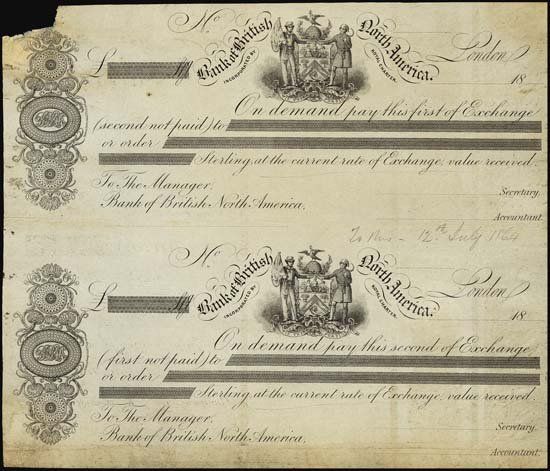 No
Bank of British North America.
INCORPORATED BY ROYAL CHARTER.
London,
£ 18
On demand pay this first of Exchange
(second not paid) to
or order
Sterling, at the current rate of Exchange, value received.
To The Manager,
Secretary.
Bank of British North America.
Accountant.
12th July 1864
No
Bank of British North America.
INCORPORATED BY ROYAL CHARTER.
London,
£ 18
On demand pay this second of Exchange
(first not paid) to
or order
Sterling, at the current rate of Exchange, value received.
To The Manager,
Secretary.
Bank of British North America.
Accountant.